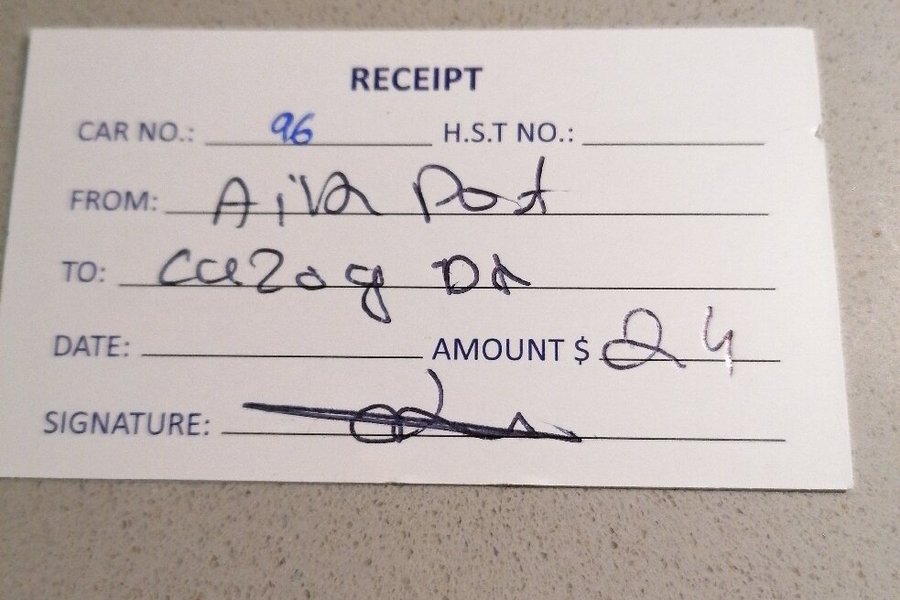 RECEIPT
CAR NO.: 96 H.S.T NO.:
FROM: AiR Port
TO: Dr
DATE: AMOUNT $ 24
SIGNATURE: